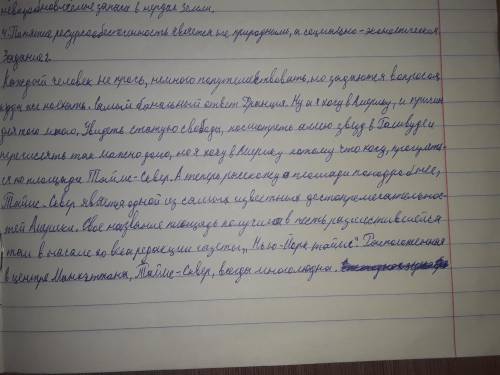 невозобновление запаса в недрах земли.
4. Понятие ресурсообеспеченность является не природным, а социально-экономическим
Задание 2
Каждый человек не прочь, немного попутешествовать, но задаются вопросом,
куда поехать. Самый банальный ответ Франция. Ну а я хочу в Америку, и причин
для того много. Увидеть статую свободы, посмотреть аллею звезд в Голивуде и
перечислять так можно долго, но я хочу в Америку потому что хочу, прогулять-
ся по площади Таймс-Сквер. А теперь расскажу о площади поподробнее,
Таймс-Сквер является одной из самых известных достопримечательнос-
тей Америки. Свое название площадь получила в честь разместившейся
там в начале 20 века редакции газеты „Нью-Йорк таймс". Расположенная
в центре Манхэттана, Таймс-Сквер, всегда многолюдна.